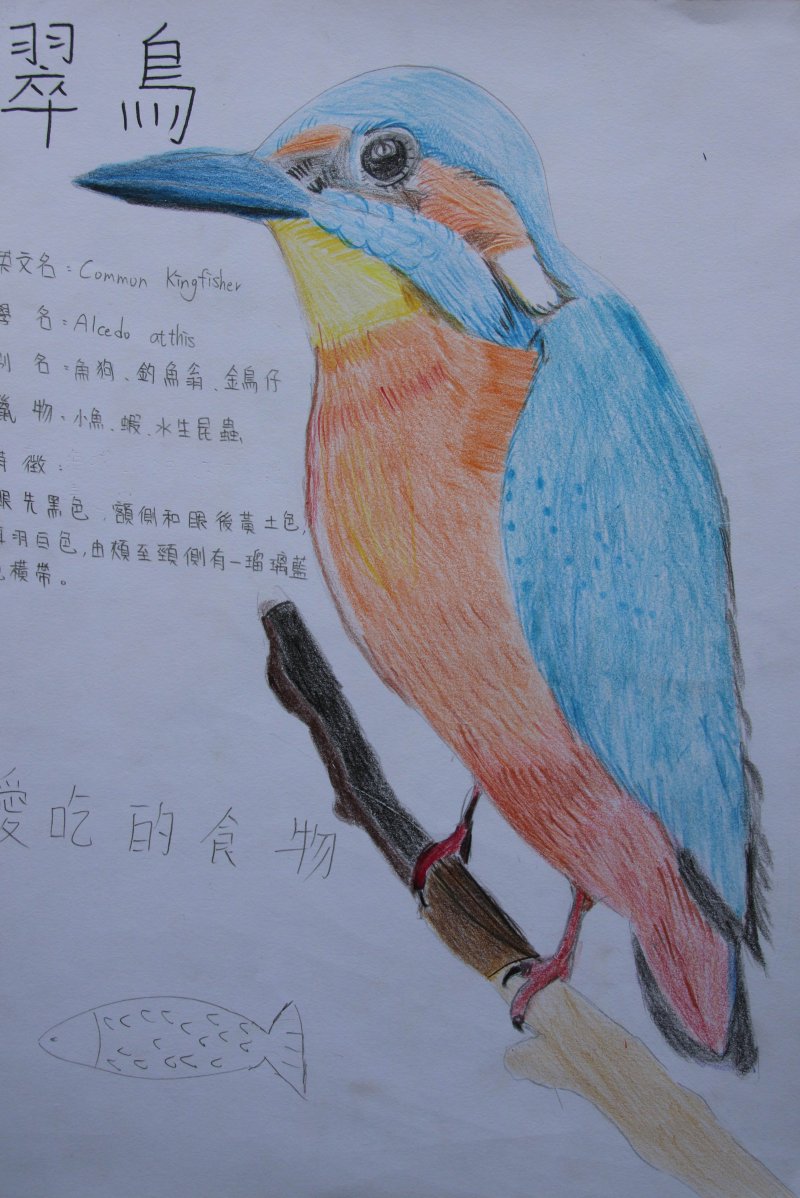 翠鳥
英文名：Common Kingfisher
學 名：Alcedo atthis
別 名：魚狗、釣魚翁、金鳥仔
獵 物、小魚、蝦、水生昆蟲
特 徵：
眼先黑色，額側和眼後黃土色，
耳羽白色，由頰至頸側有一瑠璃藍
色橫帶。
愛吃的食物